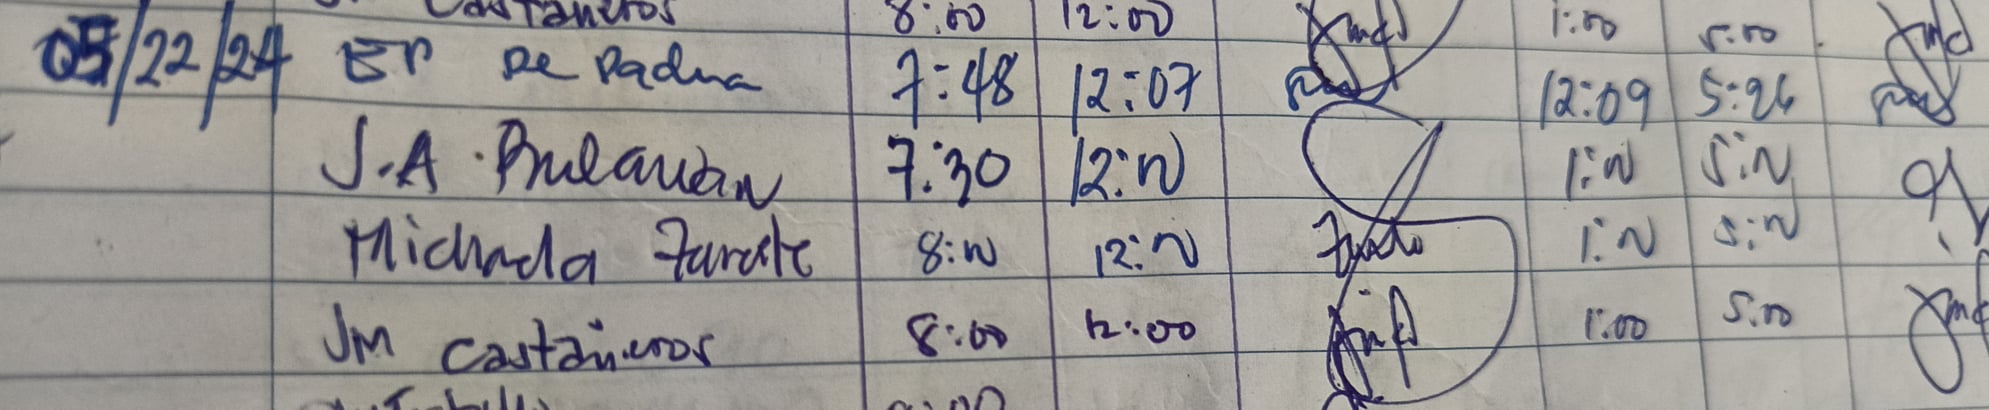 Castañeros 8:00 12:00 1:00 5:00
05/22/24 EP De Padua 7:48 12:07 12:09 5:26
J.A. Bulauan 7:30 12:00 1:00 5:00
Michaela Zarate 8:00 12:00 1:00 5:00
JM Castañeros 8:00 12:00 1:00 5:00